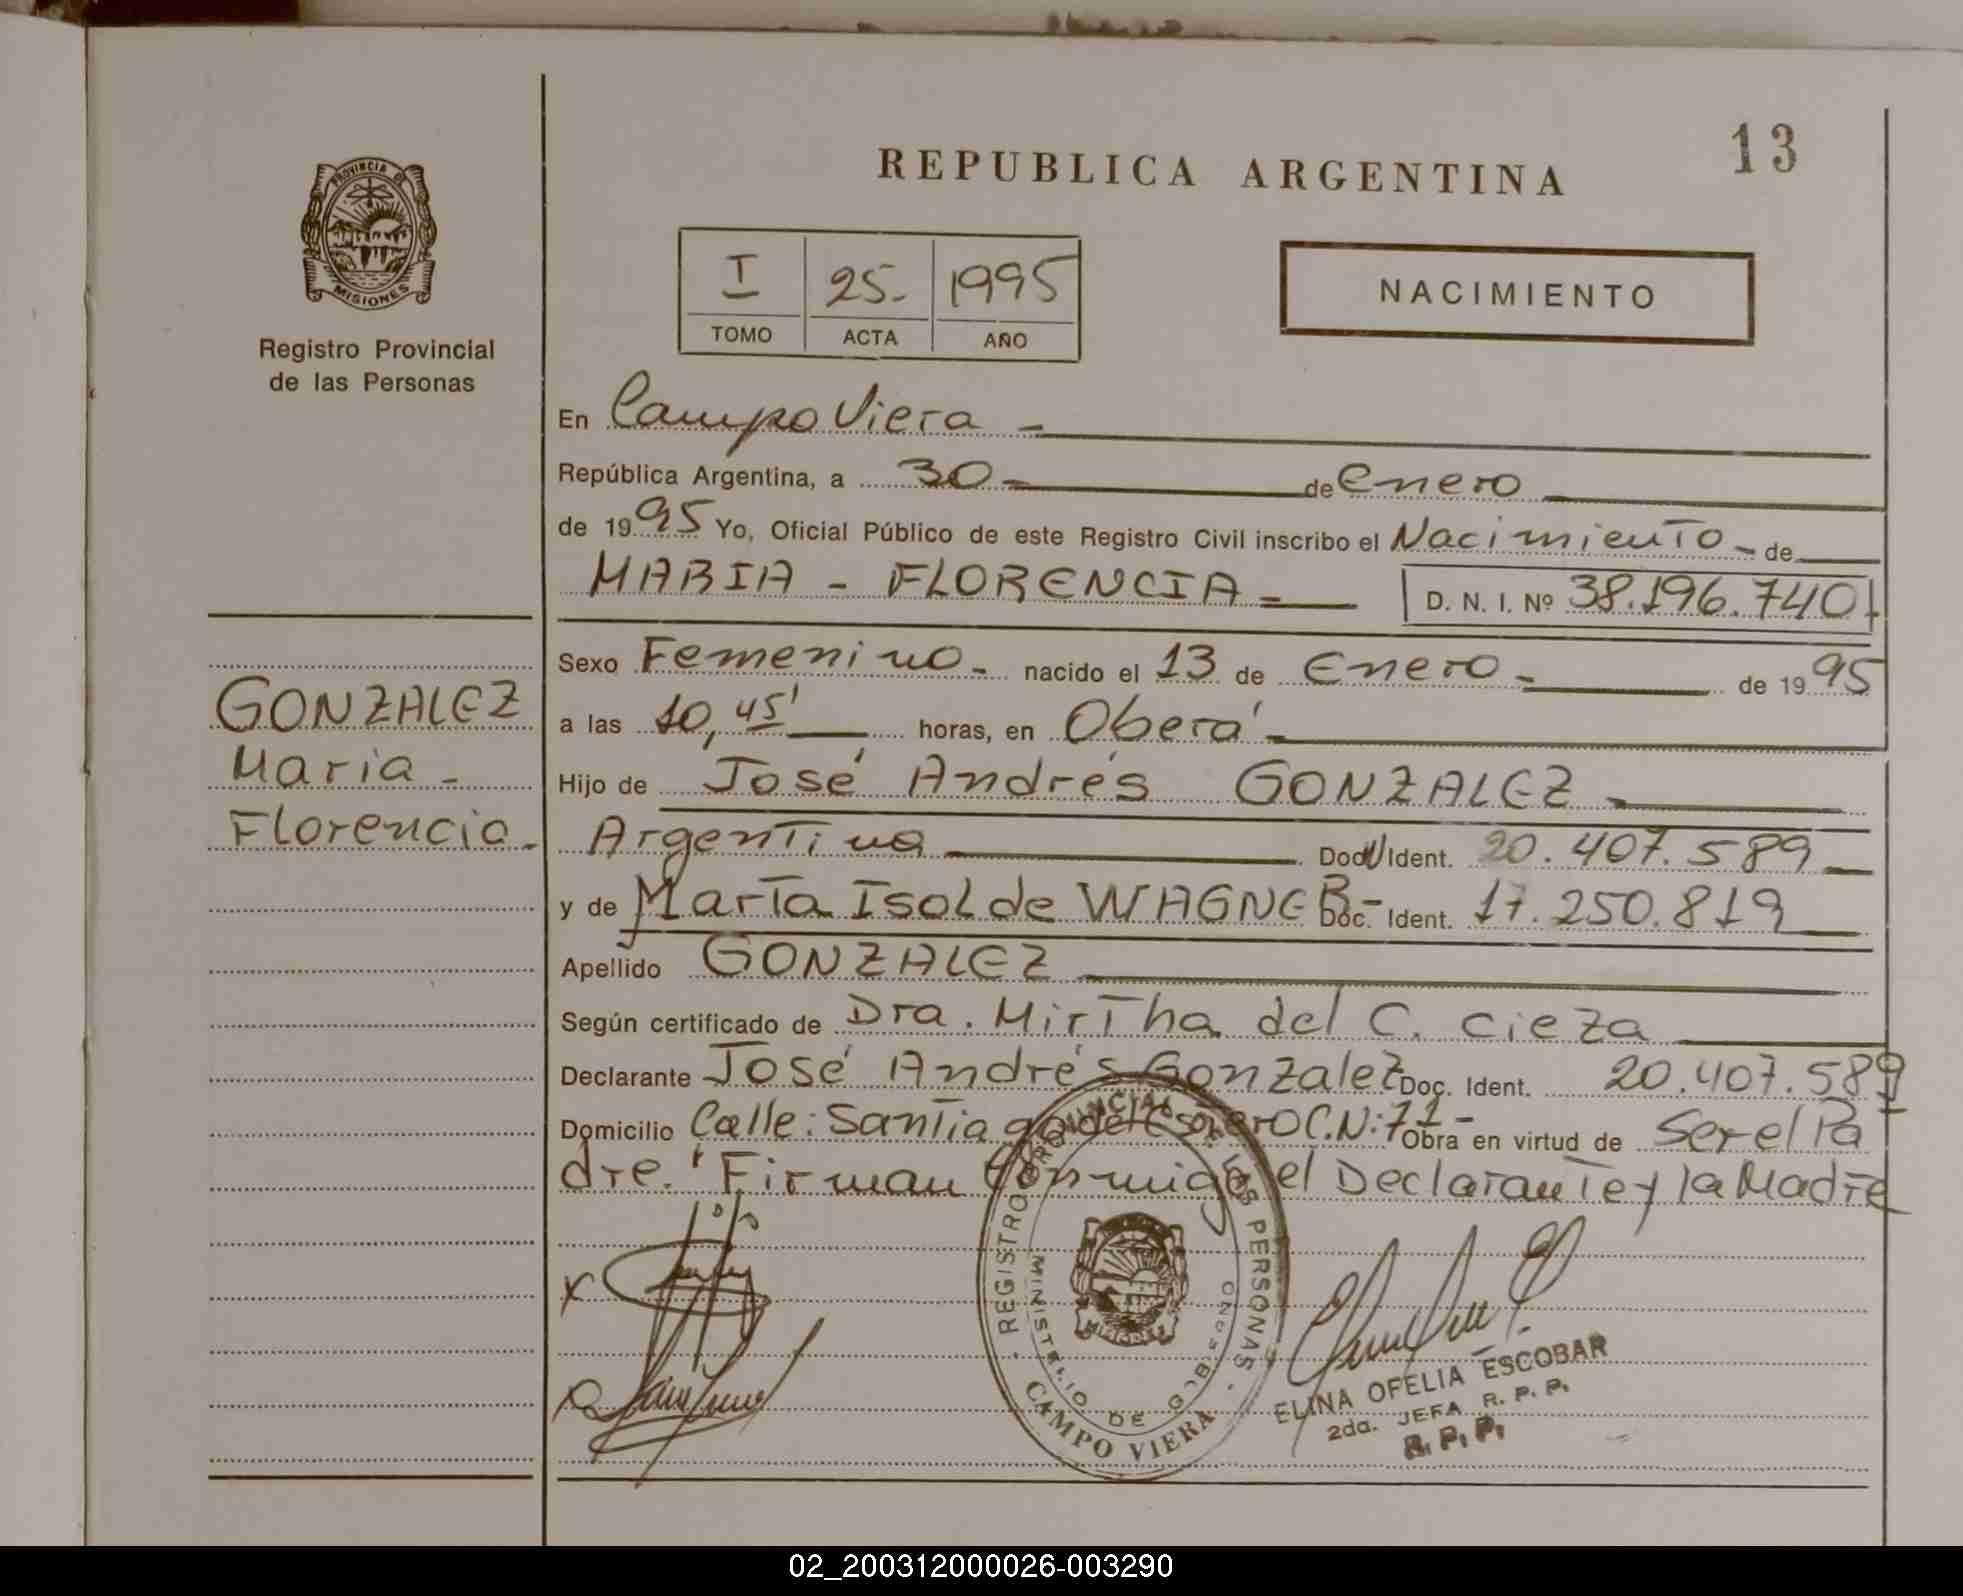 13
REPUBLICA ARGENTINA
PROVINCIA DE
MISIONES
Registro Provincial
de las Personas
I 25- 1995
TOMO ACTA AÑO
NACIMIENTO
En Campo Viera -
República Argentina, a 30- de Enero
de 1995 Yo, Oficial Público de este Registro Civil inscribo el Nacimiento - de
MARIA - FLORENCIA - D. N. I. Nº 38.196.740
Sexo Femenino - nacido el 13 de Enero - de 1995
a las 10,45' horas, en Oberá -
Hijo de José Andrés GONZALEZ -
Argentina Doc. Ident. 20.407.589
y de María Isolde WAGNER- Doc. Ident. 17.250.819
Apellido GONZALEZ
Según certificado de Dra. Mirtha del C. Cieza
Declarante José Andrés Gonzalez Doc. Ident. 20.407.589
Domicilio Calle: Santiago del Estero C.N: 71- Obra en virtud de Ser el Pa
dre. Firman conmigo el Declarante y la Madre
GONZALEZ
Maria -
Florencia -
REGISTRO PROVINCIAL DE LAS PERSONAS
MINISTERIO DE GOBIERNO
MISIONES
CAMPO VIERA
ELINA OFELIA ESCOBAR
2da. JEFA R. P. P.
R. P. P.
02_200312000026-003290